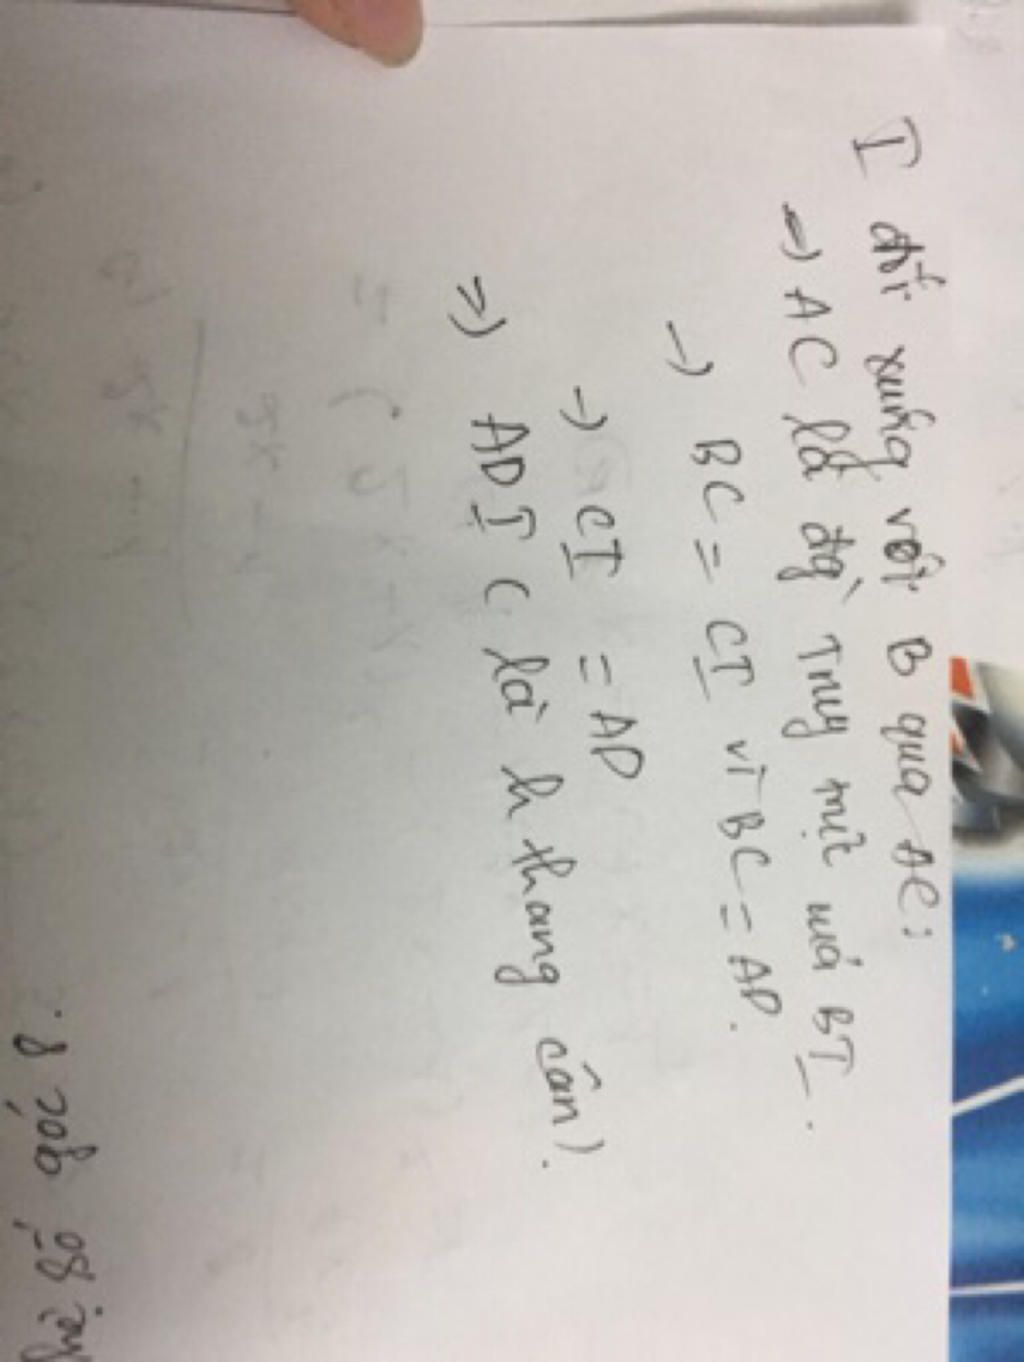 I đối xứng với B qua AC:
→ AC là đg Trug trực của BI.
→ BC = CI vì BC = AD.
→ CI = AD
=> ADIC là h thang cân).
góc 8